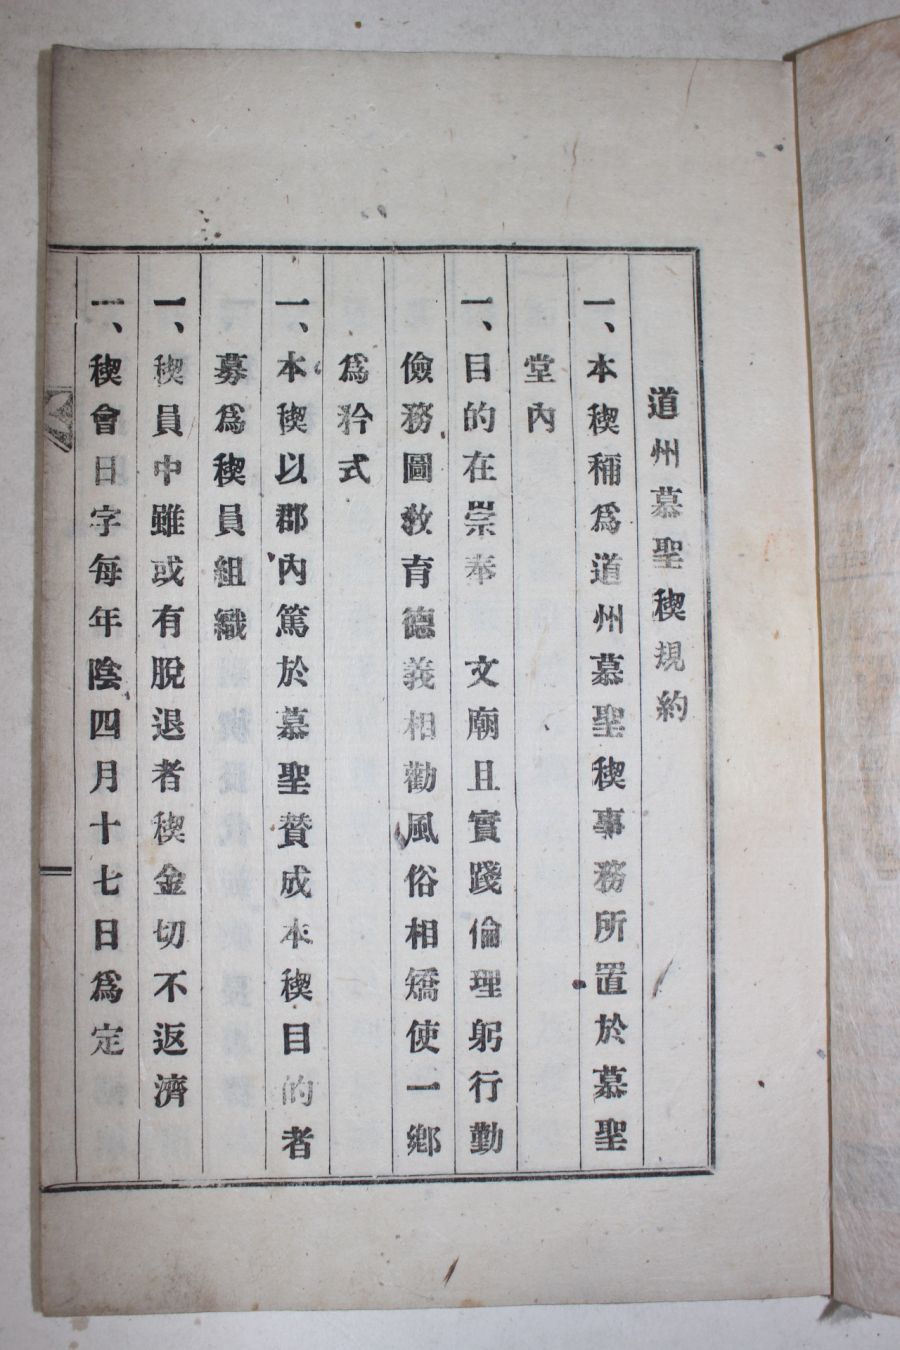 道州慕聖稧規約
一、本稧稱爲道州慕聖稧事務所置於慕聖
堂內
一、目的在崇奉　文廟且實踐倫理躬行勤
儉務圖敎育德義相勸風俗相矯使一鄕
爲矜式
一、本稧以郡內篤於慕聖賛成本稧目的者
募爲稧員組織
一、稧員中雖或有脫退者稧金切不返濟
一、稧會日字每年陰四月十七日爲定